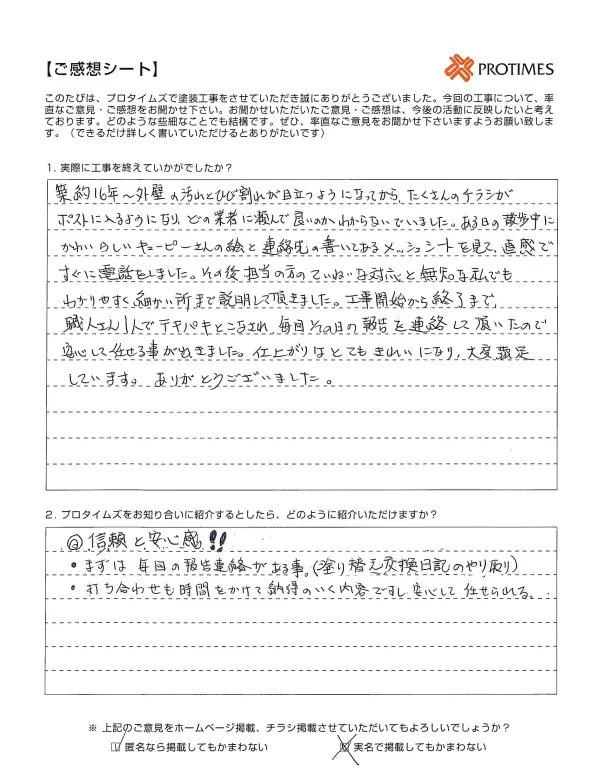 【ご感想シート】
PROTIMES
このたびは、プロタイムズで塗装工事をさせていただき誠にありがとうございました。今回の工事について、率
直なご意見・ご感想をお聞かせ下さい。お聞かせいただいたご意見・ご感想は、今後の活動に反映したいと考え
ております。どのような些細なことでも結構です。ぜひ、率直なご意見をお聞かせ下さいますようお願い致しま
す。（できるだけ詳しく書いていただけるとありがたいです）
1. 実際に工事を終えていかがでしたか？
築約16年～外壁の汚れとひび割れが目立つようになってから、たくさんのチラシが
ポストに入るようになり、どの業者に頼んで良いのかわからないでいました。ある日の散歩中に
かわいらしいキューピーさんの絵と連絡先の書いてあるメッシュシートを見て、直感で
すぐに電話をしました。その後担当の方のていねいな対応と無知な私でも
わかりやすく細かい所まで説明して頂きました。工事開始から終了まで、
職人さん1人でテキパキとこなされ、毎回その日の報告を連絡して頂いたので
安心して任せる事ができました。仕上がりはとてもきれいになり、大変満足
しています。ありがとうございました。
2. プロタイムズをお知り合いに紹介するとしたら、どのように紹介いただけますか？
◎信頼と安心感!!
・まずは毎回の報告連絡がある事。(塗り替え交換日記のやり取り)
・打ち合わせも時間をかけて納得のいく内容ですし安心して任せられる。
※ 上記のご意見をホームページ掲載、チラシ掲載させていただいてもよろしいでしょうか？
匿名なら掲載してもかまわない 実名で掲載してもかまわない